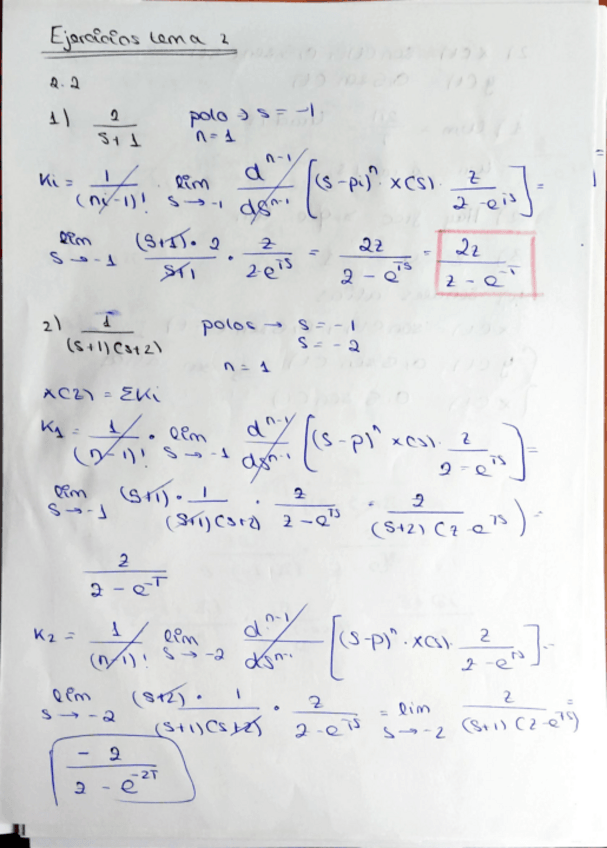 Ejercicios tema 2
2.2
1) 2/(s+1) polo → s = -1
n = 1
Ki = 1/(ni-1)! lím s→-1 d^(n-1)/ds^(n-1) [(s-pi)^n · x(s) · z/(z-e^(TS))] =
lím s→-1 (s+1)·2/(s+1) · z/(z-e^(TS)) = 2z/(z-e^(TS)) = 2z/(z-e^(-T))
2) 1/((s+1)(s+2)) polos → s = -1
s = -2
n = 1
x(z) = ΣKi
K1 = 1/(n-1)! · lím s→-1 d^(n-1)/ds^(n-1) [(s-p)^n x(s) · z/(z-e^(TS))] =
lím s→-1 (s+1) · 1/((s+1)(s+2)) · z/(z-e^(TS)) = z/((s+2)(z-e^(TS))) =
z/(z-e^(-T))
K2 = 1/(n-1)! lím s→-2 d^(n-1)/ds^(n-1) [(s-p)^n · x(s) · z/(z-e^(TS))] =
lím s→-2 (s+2) · 1/((s+1)(s+2)) · z/(z-e^(TS)) = lím s→-2 z/((s+1)(z-e^(TS))) =
-z/(z-e^(-2T))